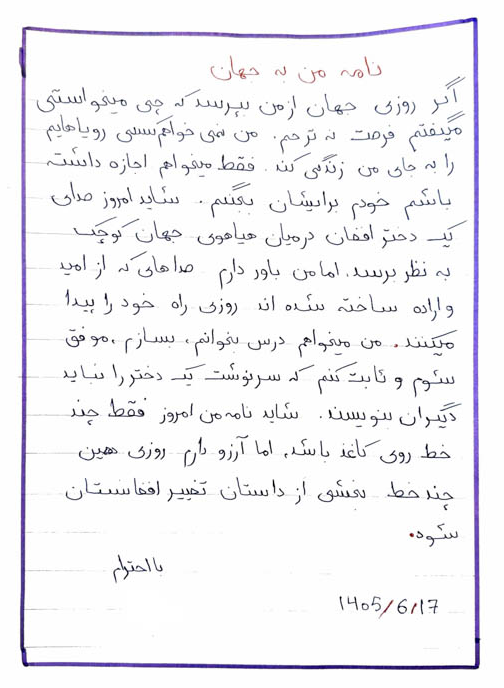 نامه من به جهان
اگر روزی جهان از من بپرسد که چی میخواستی
میگفتم فرصت نه ترحم. من نمی خواهم کسی رویاهایم
را به جای من زندگی کند. فقط میخواهم اجازه داشته
باشم خودم برایشان بجنگم. شاید امروز صدای
یک دختر افغان درمیان هیاهوی جهان کوچک
به نظر برسد. اما من باور دارم صداهای که از امید
و اراده ساخته شده اند روزی راه خود را پیدا
میکنند. من میخواهم درس بخوانم، بسازم، موفق
شوم و ثابت کنم که سرنوشت یک دختر را نباید
دیگران بنویسند. شاید نامه من امروز فقط چند
خط روی کاغذ باشد، اما آرزو دارم روزی همین
چند خط بخشی از داستان تغییر افغانستان
شود.
با احترام
1405/6/17